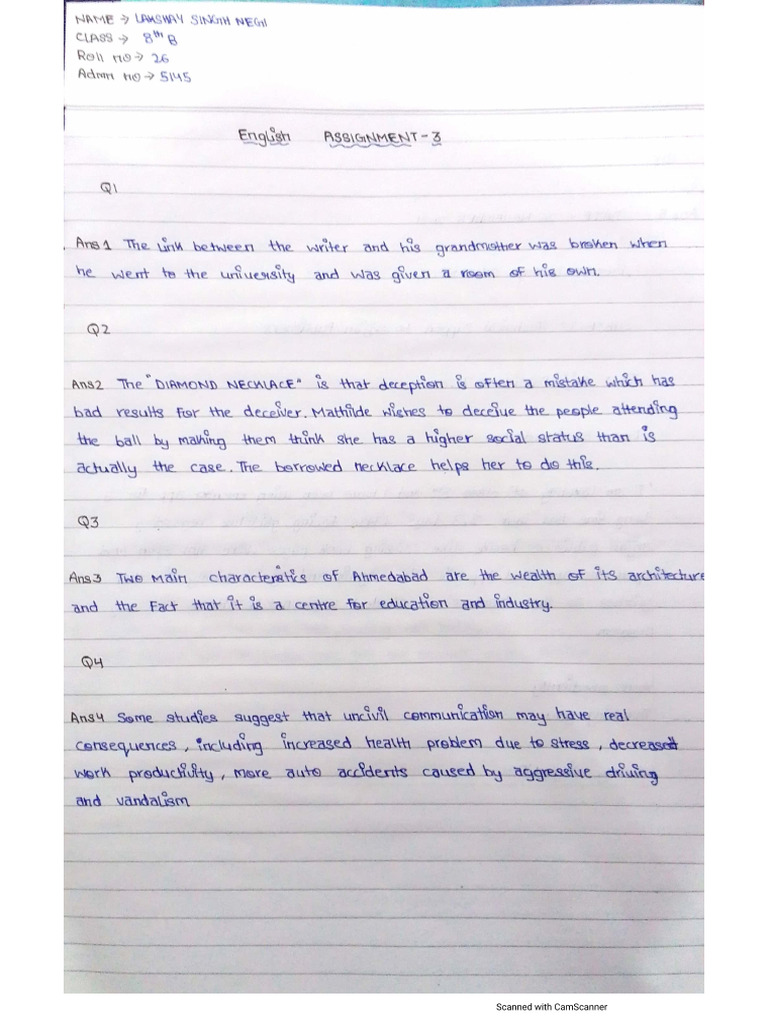 NAME → LAKSHAY SINGH NEGI
CLASS → 8th B
Roll no → 26
Admn no → 5145
English ASSIGNMENT-3
Q1
Ans1 The link between the writer and his grandmother was broken when
he went to the university and was given a room of his own.
Q2
Ans2 The "DIAMOND NECKLACE" is that deception is often a mistake which has
bad results for the deceiver. Mathilde wishes to deceive the people attending
the ball by making them think she has a higher social status than is
actually the case. The borrowed necklace helps her to do this.
Q3
Ans3 Two Main characteristics of Ahmedabad are the wealth of its architecture
and the Fact that it is a centre for education and industry.
Q4
Ans4 Some studies suggest that uncivil communication may have real
consequences, including increased health problem due to stress, decreased
work productivity, more auto accidents caused by aggressive driving
and vandalism
Scanned with CamScanner